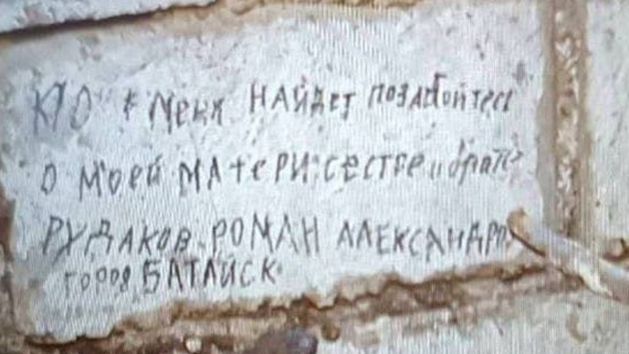 КТО меня НАЙДЕТ ПОЗАБОЙТЕСЬ
О МОЕЙ МАТЕРИ: СЕСТРЕ и брате
РУДАКОВ. РОМАН АЛЕКСАНДРО
город БАТАЙСК.